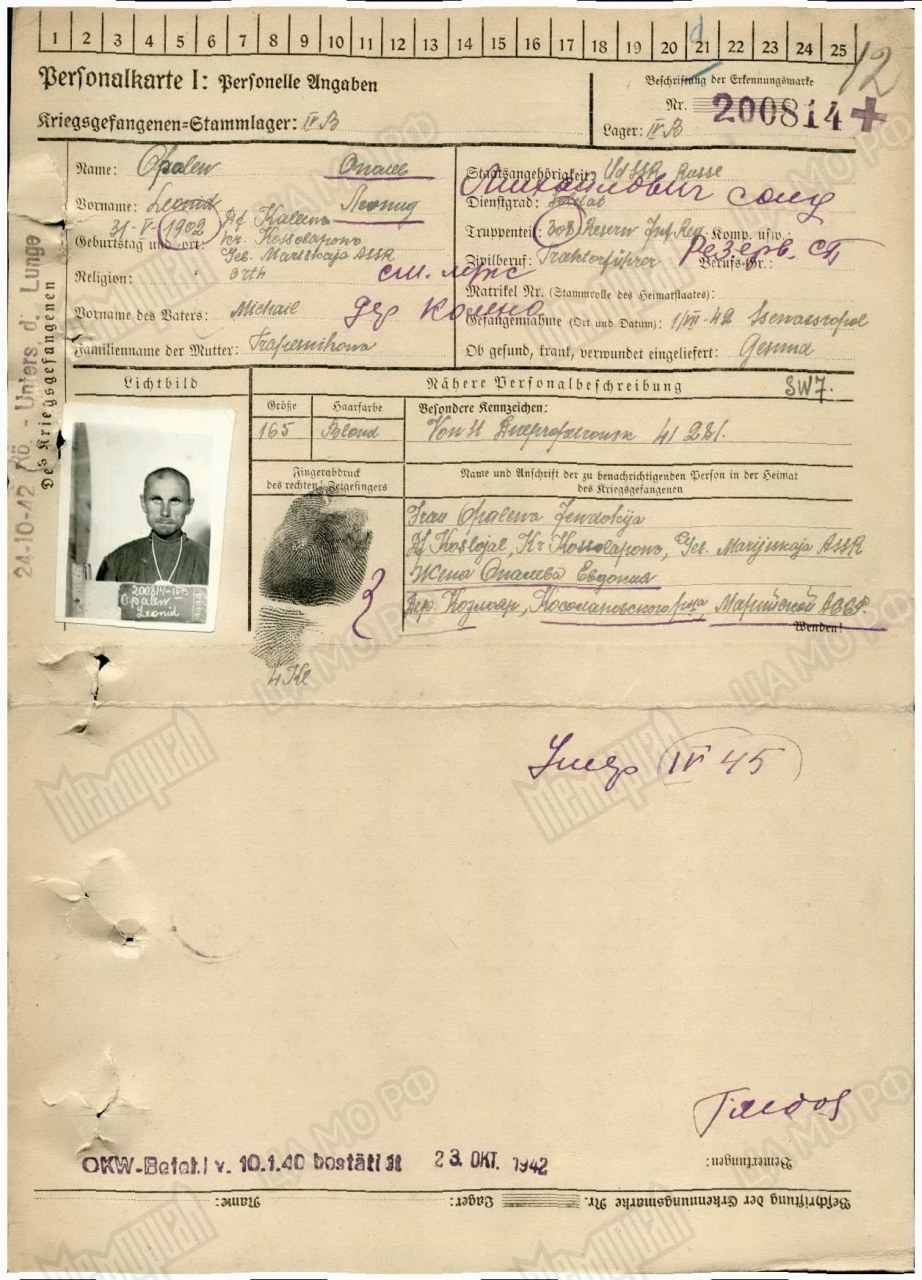 1 2 3 4 5 6 7 8 9 10 11 12 13 14 15 16 17 18 19 20 21 22 23 24 25
12
Personalkarte I: Personelle Angaben
Beschriftung der Erkennungsmarke
Nr. 200814 +
Kriegsgefangenen=Stammlager: IV B
Lager: IV B
Name: Opalew Опалев
Vorname: Leonid Леонид
Geburtstag und =ort: 31-V-1902
Kr. Kossolapowo
Geb. Mariskaja ASSR
Religion: orth
Vorname des Vaters: Michail
дер
Familienname der Mutter: Trapesnikowa
Staatsangehörigkeit: UdSSR Russe
Михайлович солд
Dienstgrad: Soldat
Truppenteil: 308 Reserv Inf. Reg. Komp. usw.:
Резерв. СП
Zivilberuf: Traktorführer Berufs=Gr.:
Matrikel Nr. (Stammrolle des Heimatstaates):
Gefangennahme (Ort und Datum): 1/VII-42 Ssewastopol
Ob gesund, krank, verwundet eingeliefert: Gesund
Des Kriegsgefangenen
24-10-42 Rö.-Unters. d. Lunge
Lichtbild
Nähere Personalbeschreibung
SW7.
Größe
165
Haarfarbe
Blond
Besondere Kennzeichen:
Fingerabdruck
des rechten Zeigefingers
200814-IVB
Opalew
Leonid
Name und Anschrift der zu benachrichtigenden Person in der Heimat
des Kriegsgefangenen
Frau Opalewa Jewdokija
Df Koslojal, Kr Kossolapowo, Geb. Marijskaja ASSR
Жена Опалева Евдокия
Дер. Козлояр, Косолаповского р-на Марийской АССР.
Wenden!
Умер IV 45
OKW-Befehl v. 10.1.40 bestätigt 23. OKT. 1942
Bemerkungen:
Beschriftung der Erkennungsmarke Nr. Lager: Name:
Мемориал
ЦА МО РФ